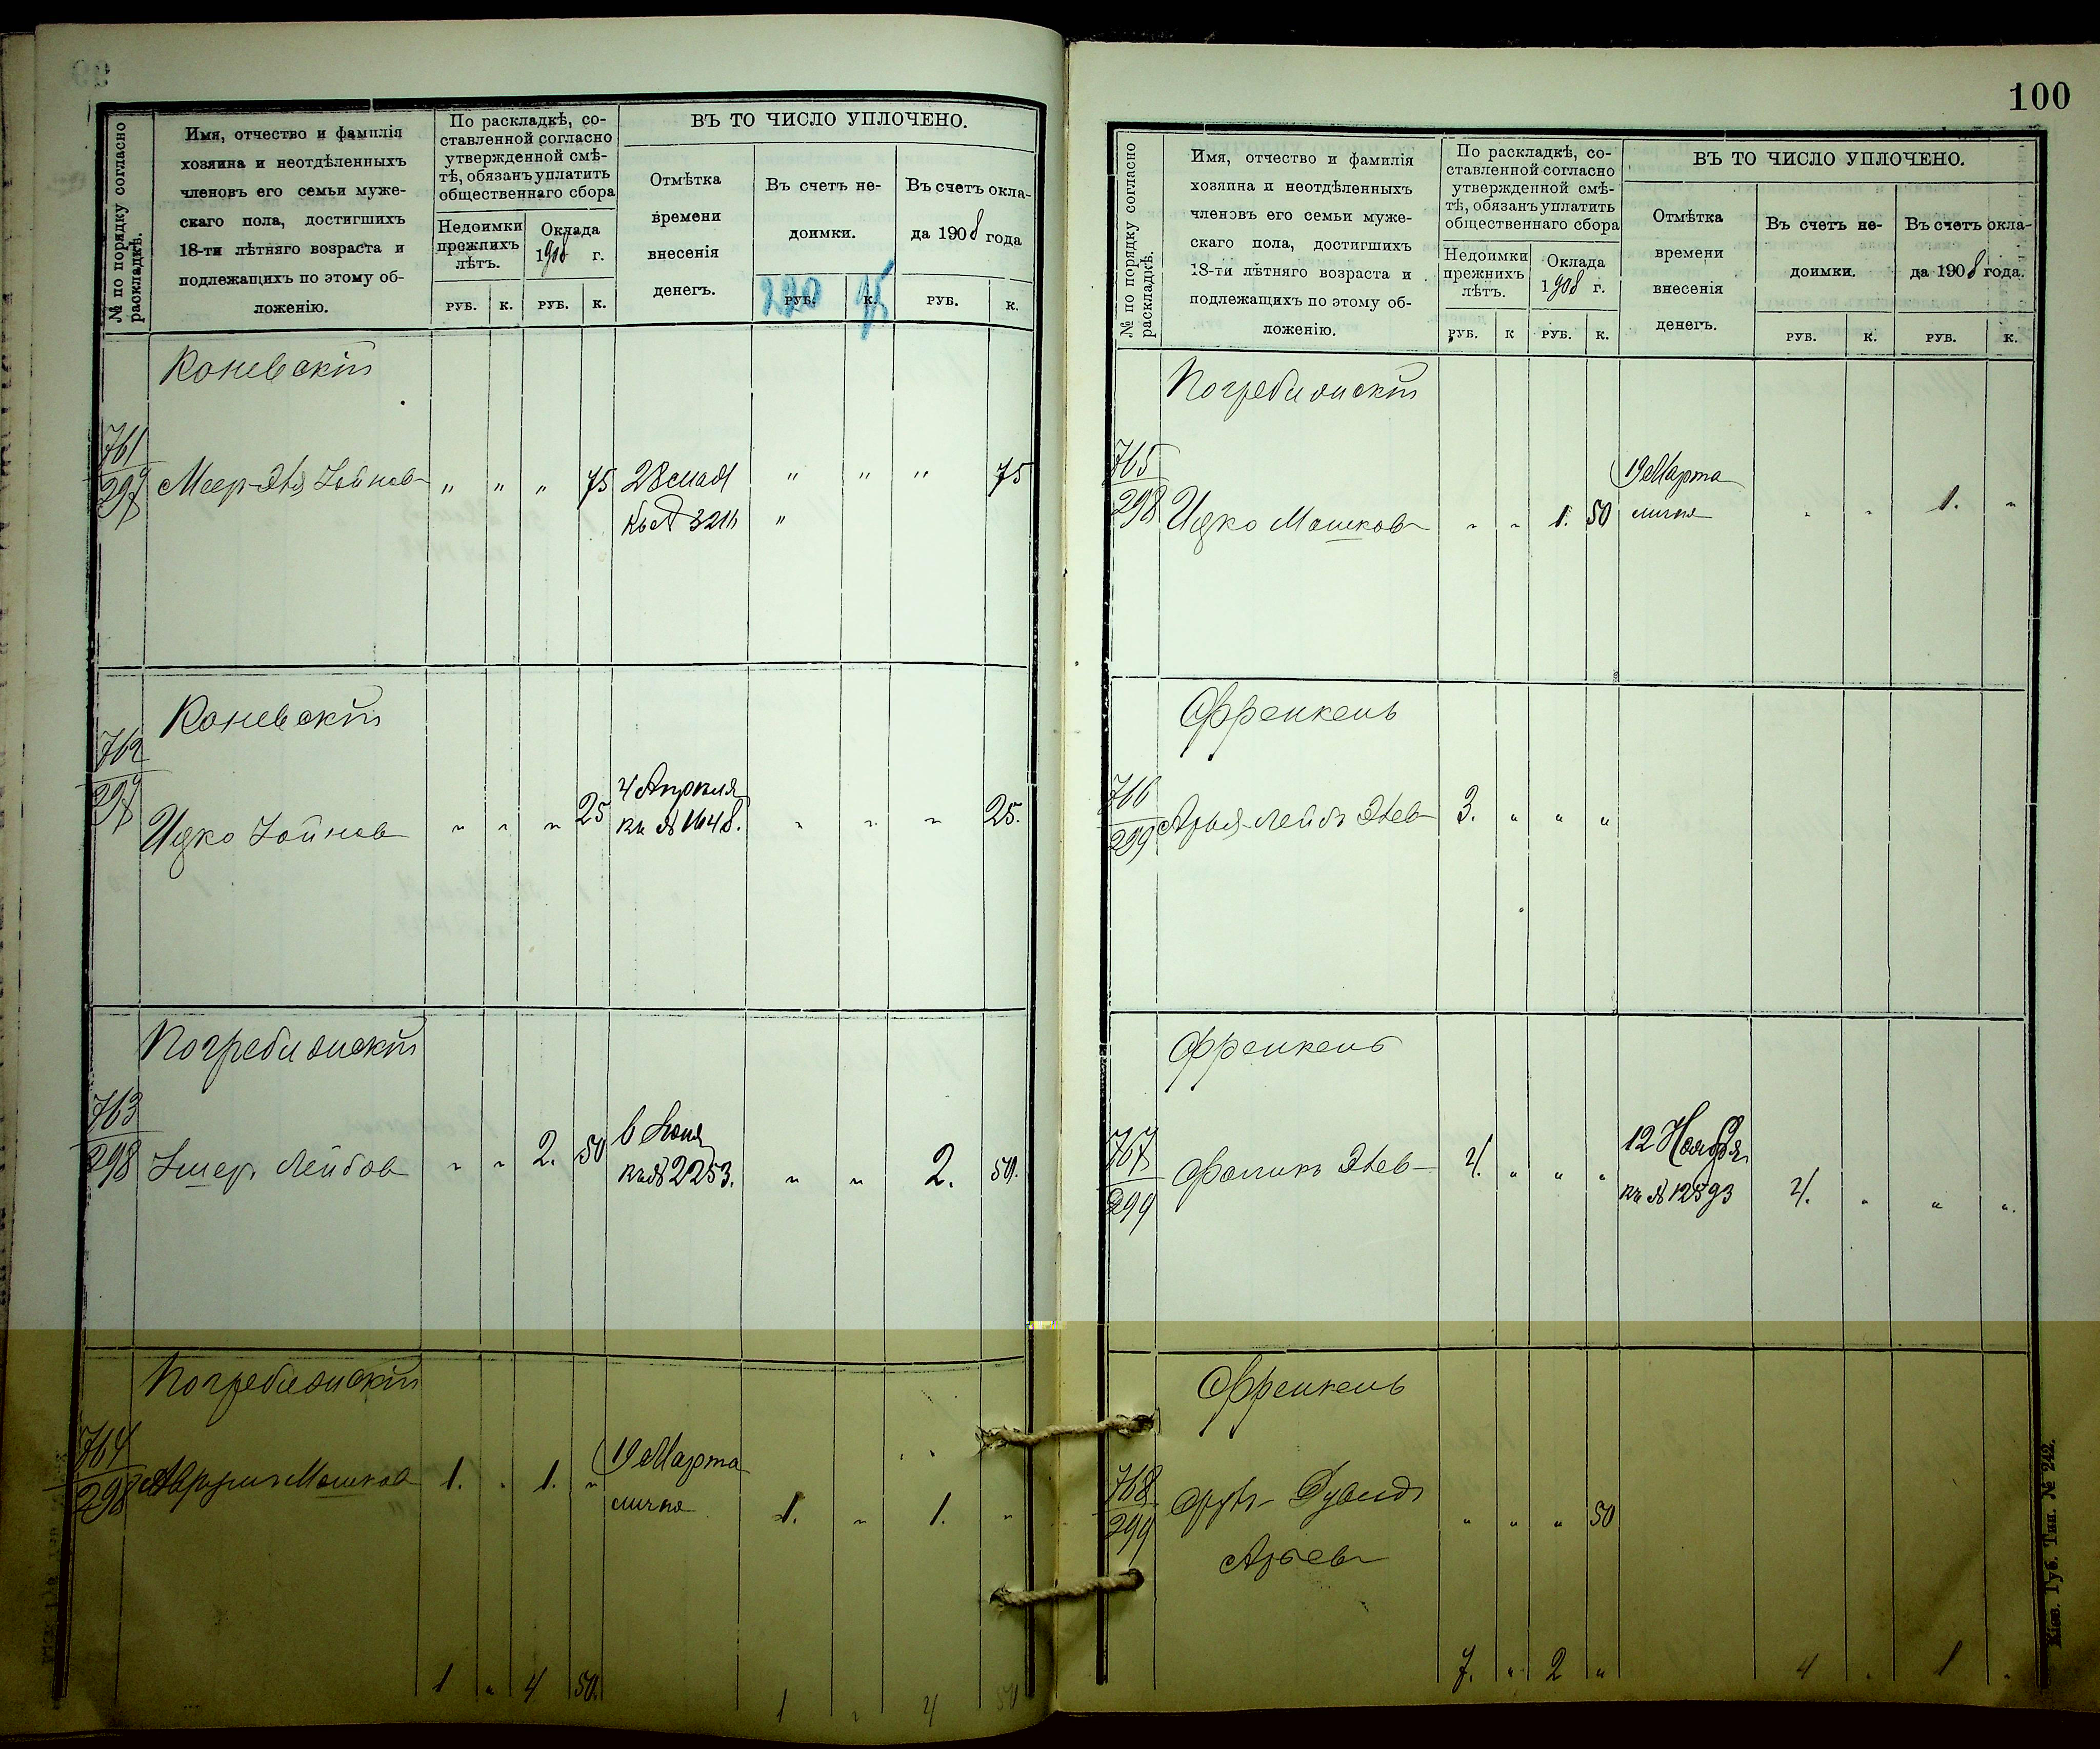 № по порядку согласно
раскладкѣ.
Имя, отчество и фамилія
хозяина и неотдѣленныхъ
членовъ его семьи муже-
скаго пола, достигшихъ
18-ти лѣтняго возраста и
подлежащихъ по этому об-
ложенію.
По раскладкѣ, со-
ставленной согласно
утвержденной смѣ-
тѣ, обязанъ уплатить
общественнаго сбора
Недоимки
прежнихъ
лѣтъ.
Оклада
1908 г.
РУБ. К. РУБ. К.
ВЪ ТО ЧИСЛО УПЛОЧЕНО.
Отмѣтка
времени
внесенія
денегъ.
Въ счетъ не-
доимки.
Въ счетъ окла-
да 1908 года
220 75
РУБ. К. РУБ. К.
Каневскій
761
297
" " " 75 28 мая " " " 75
3211 "
Каневскій
762
297
Ицко " " " 25 4 Апрѣля
кв № 1648. " " " 25.
Погребискій
763
298
Лейбов " " 2. 50 6 Іюня
кв № 2253. " " 2. 50.
Погребискій
764
298
Мошков 1. " 1. " 19 Марта
лично 1. " 1. "
1 " 4 50. 1 " 4 50
100
№ по порядку согласно
раскладкѣ.
Имя, отчество и фамилія
хозяина и неотдѣленныхъ
членовъ его семьи муже-
скаго пола, достигшихъ
18-ти лѣтняго возраста и
подлежащихъ по этому об-
ложенію.
По раскладкѣ, со-
ставленной согласно
утвержденной смѣ-
тѣ, обязанъ уплатить
общественнаго сбора
Недоимки
прежнихъ
лѣтъ.
Оклада
1908 г.
РУБ. К РУБ. К.
ВЪ ТО ЧИСЛО УПЛОЧЕНО.
Отмѣтка
времени
внесенія
денегъ.
Въ счетъ не-
доимки.
Въ счетъ окла-
да 1908 года.
РУБ. К. РУБ. К.
Погребискій
765
298
Ицко Мошков " " 1. 50 19 Марта
лично " " 1. "
Френкель
766
299
Арья-Лейбъ 3. " " "
Френкель
767
299
4. " " " 12 Ноября
кв № 12593 4. " " ".
Френкель
768
299
Дувидъ " " " 50
Арьев
7. " 2 " 4 " 1 "
Кіев. Губ. Тип. № 242.